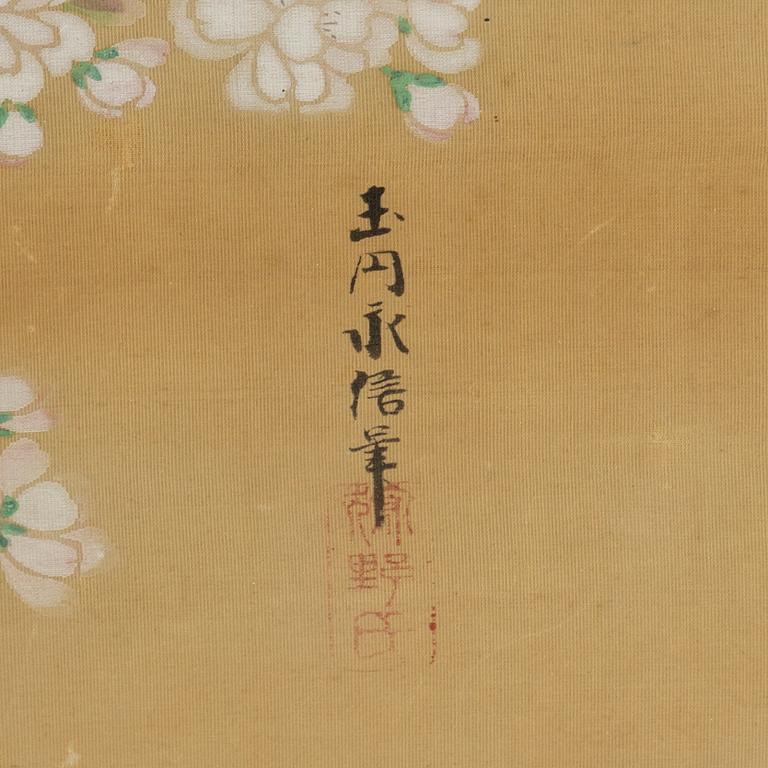 玉円永信筆
野氏